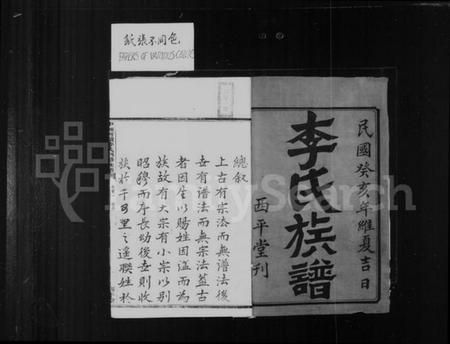 紙張不同色
PAPERS OF VARIOUS COLOR
民國癸亥年維夏吉日
李氏族譜
西平堂刊
總叙
上古有宗法而無譜法後
世有譜法而無宗法蓋古
者因生以賜姓因謚而為
族故有大宗有小宗以別
昭穆而序長幼後世則收
族於千百里之遙聯姓於
FamilySearch